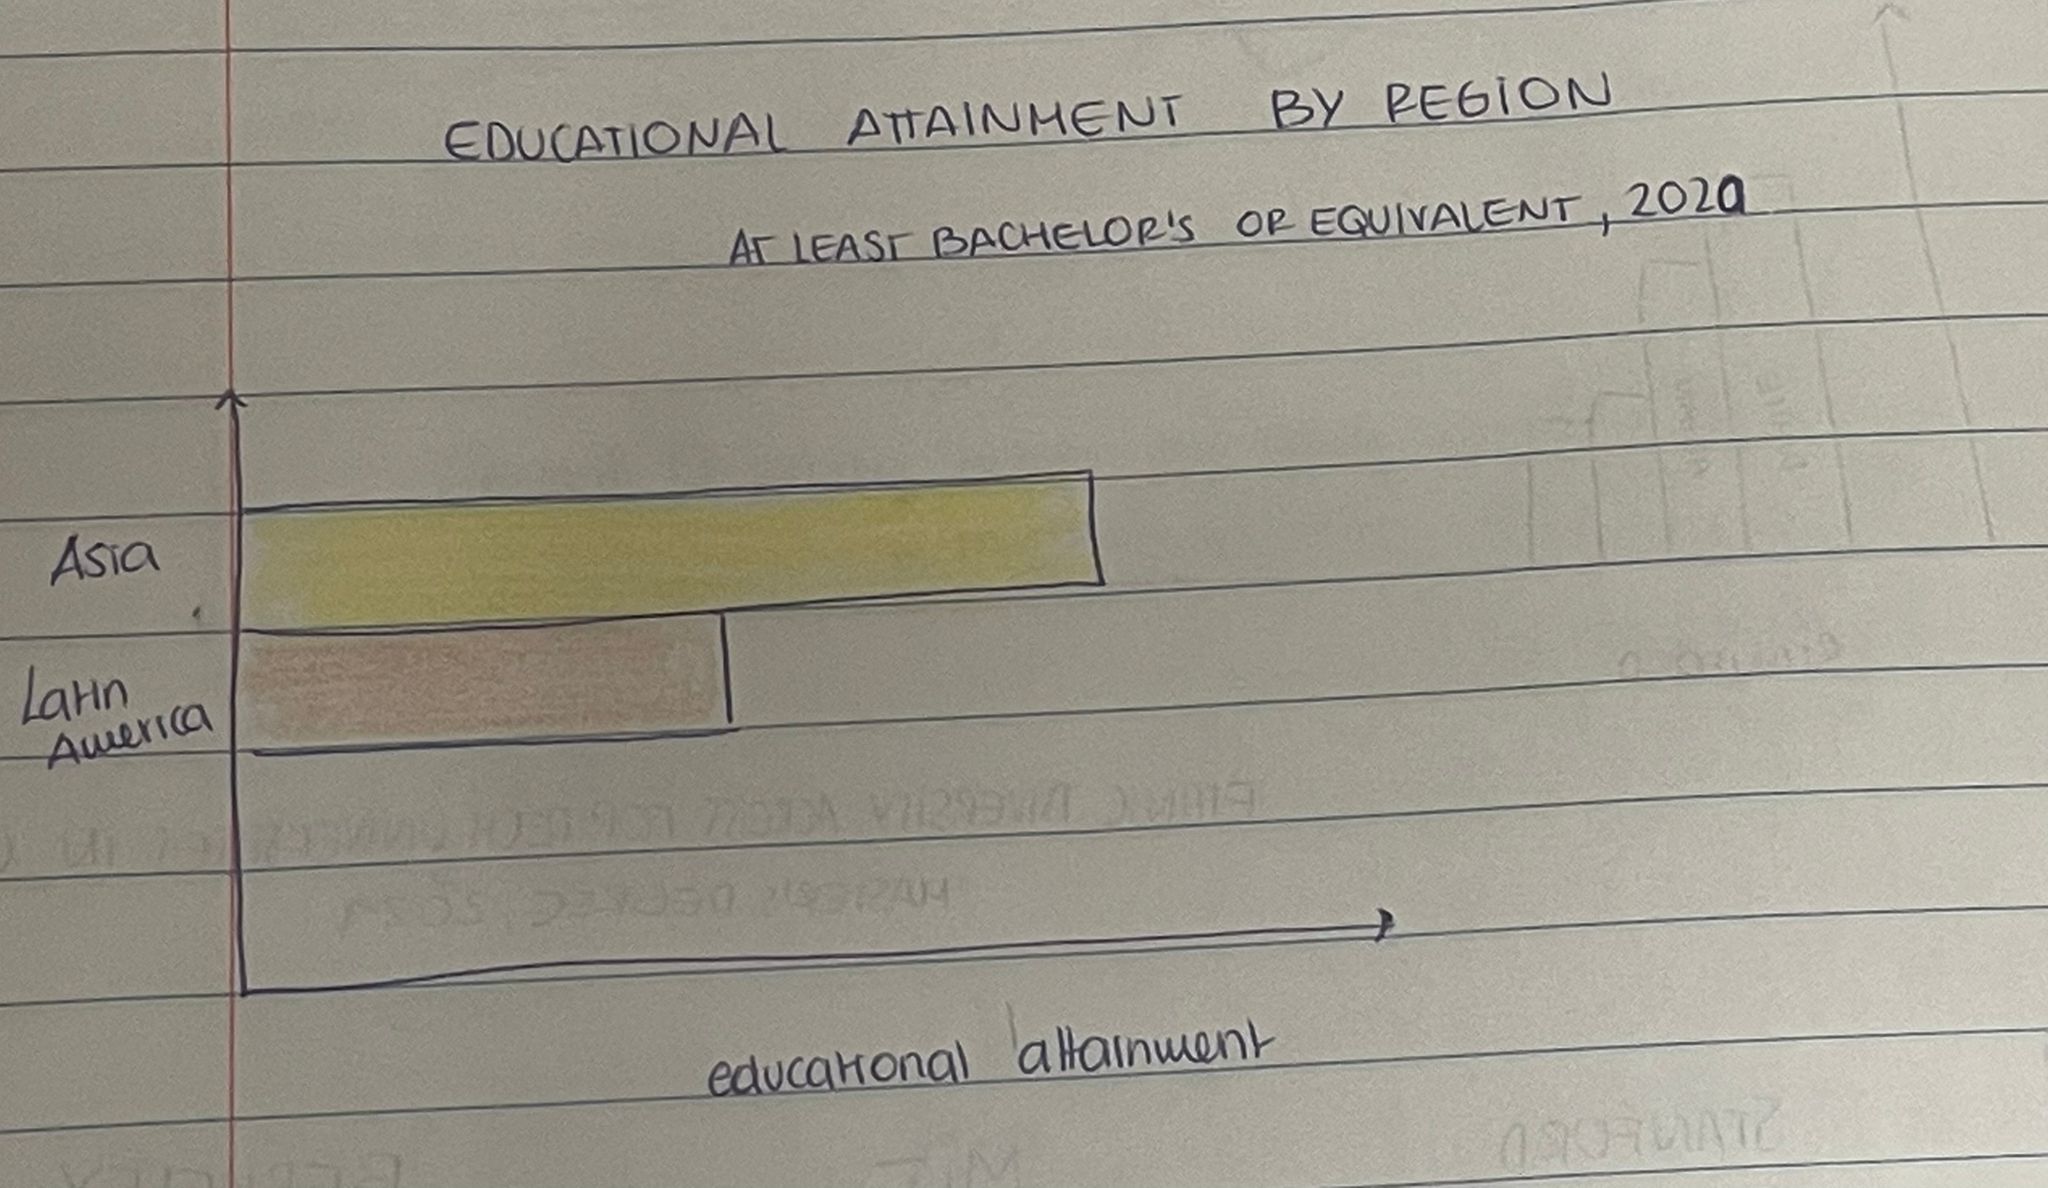 EDUCATIONAL ATTAINMENT BY REGION
AT LEAST BACHELOR'S OR EQUIVALENT, 2020
Asia
Latin
America
educational attainment